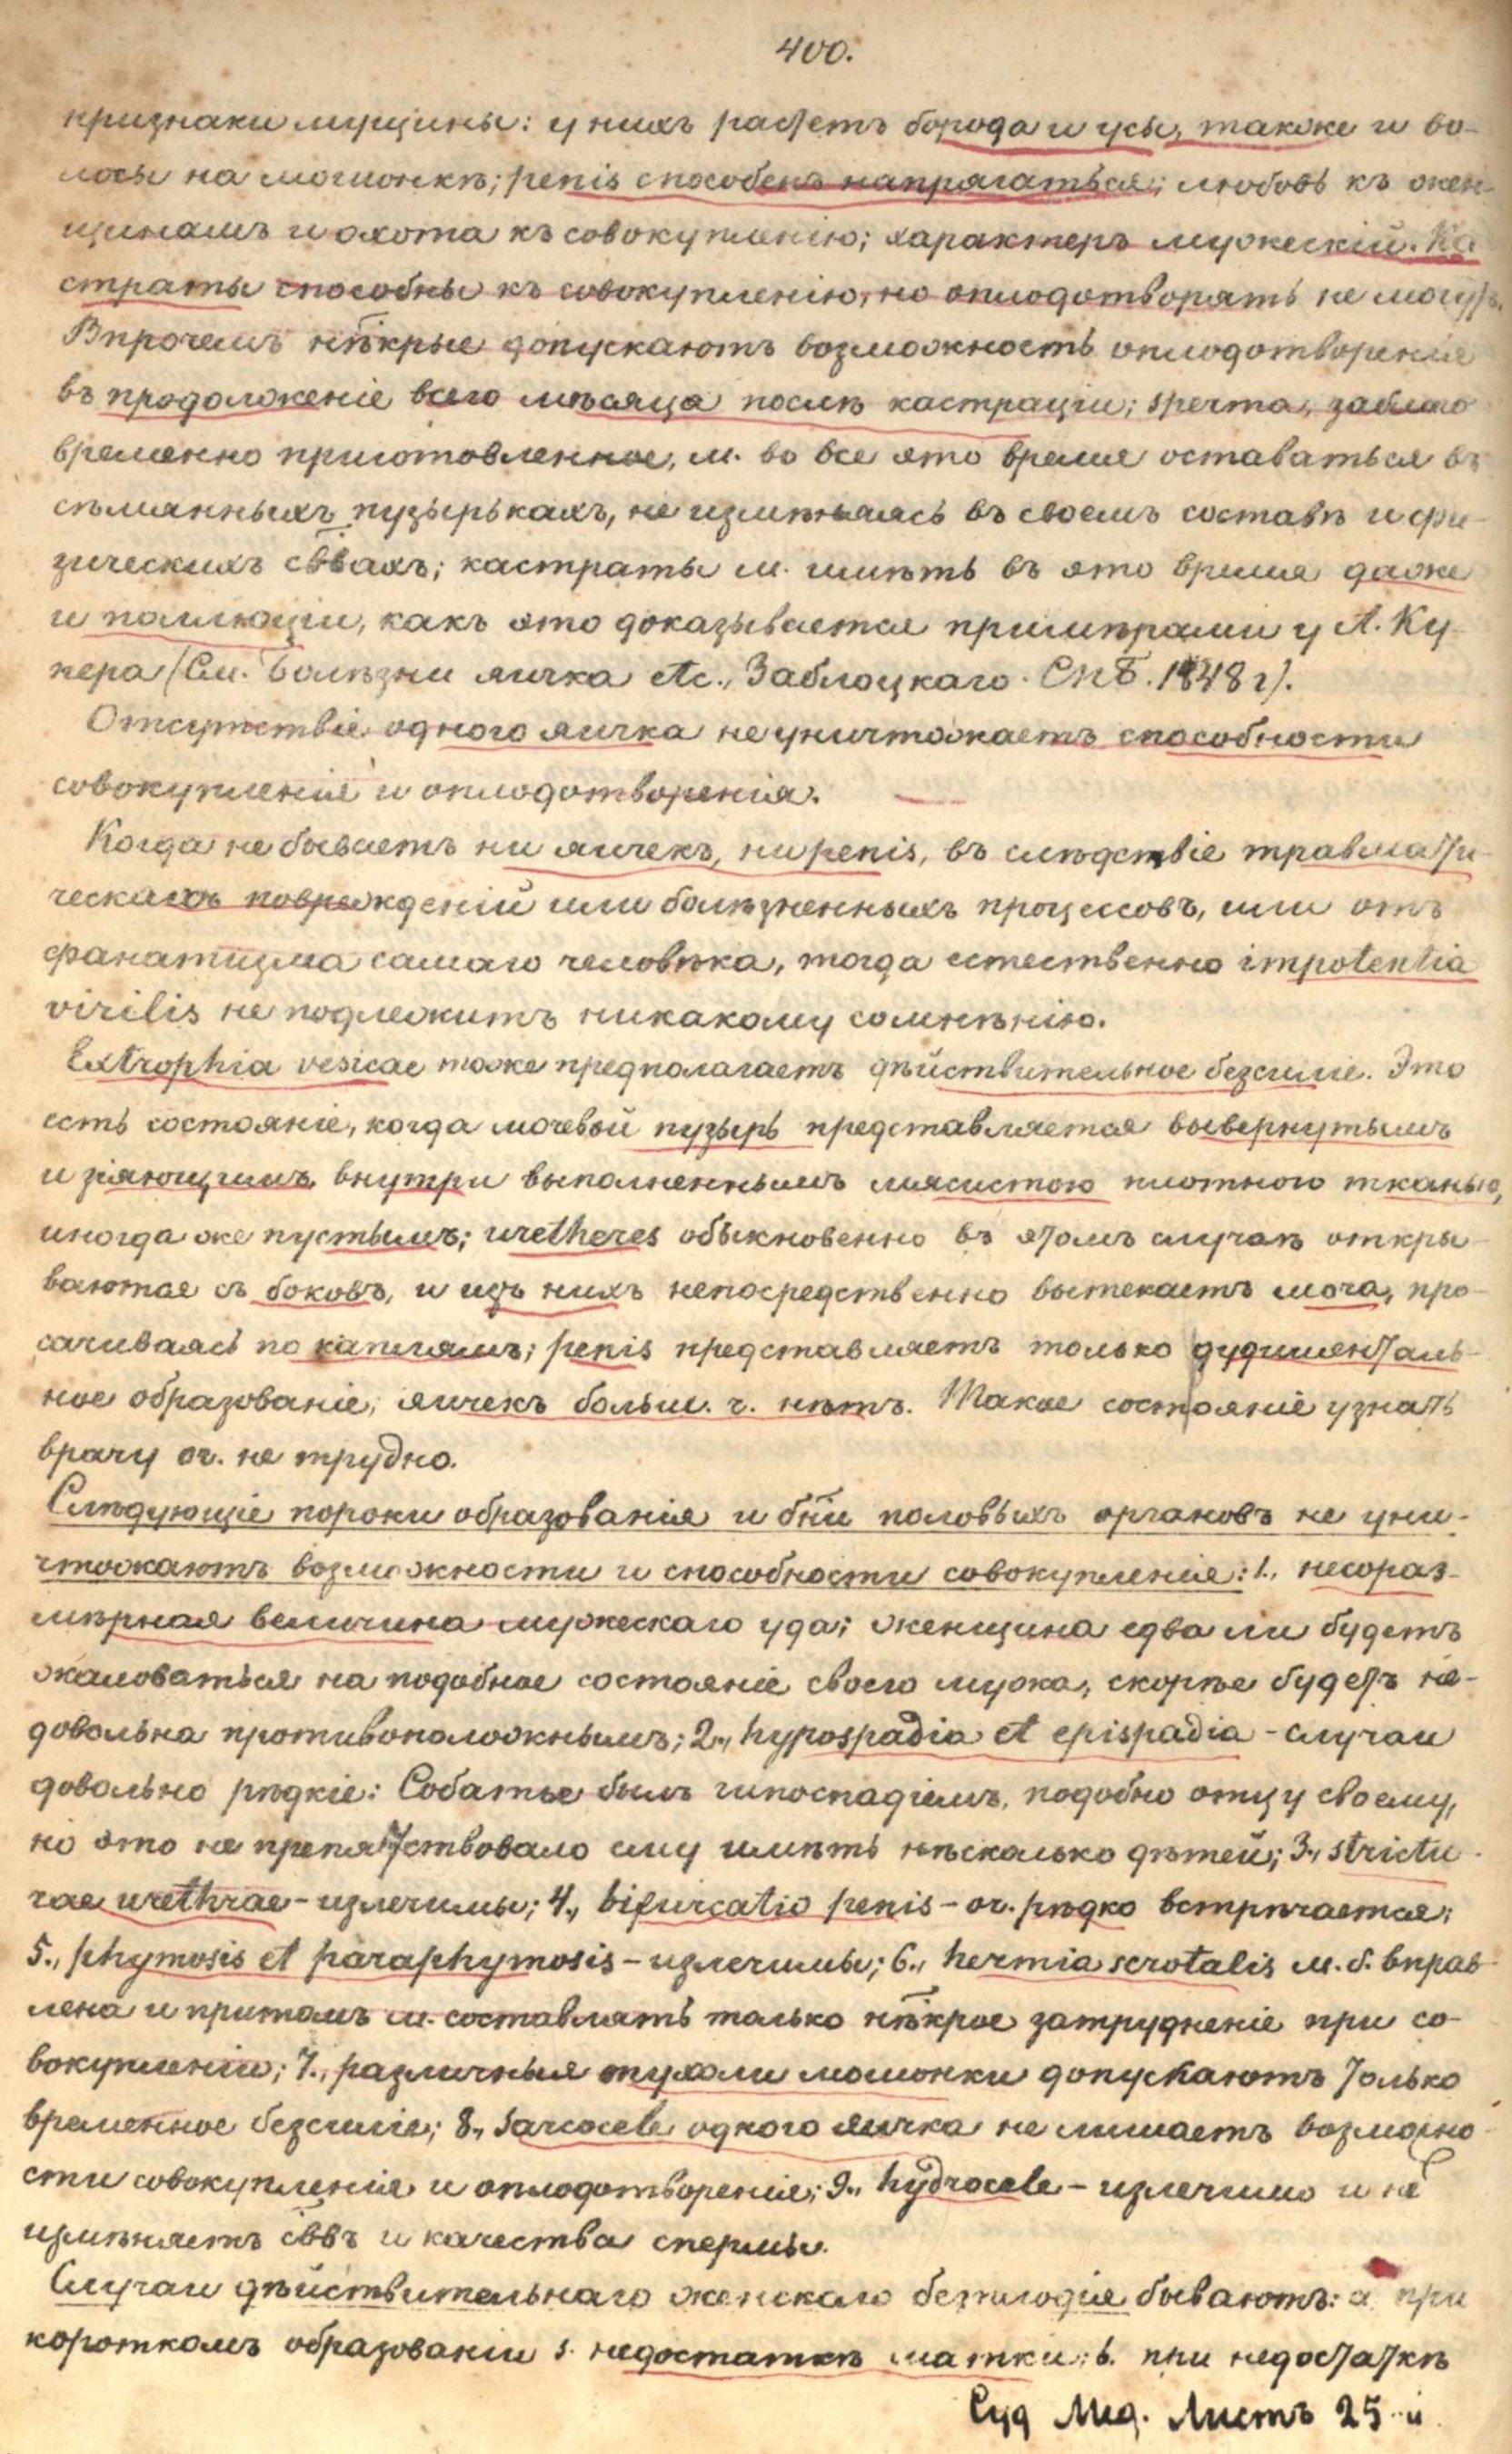 400.
признаки мущины: у нихъ растетъ борода и усы, также и во-
лосы на мошонкѣ; penis способенъ напрягаться; любовь къ жен-
щинамъ и охота къ совокупленію; характеръ мужескій. Ка
страты способны къ совокупленію, но оплодотворять не могутъ.
Впрочемъ нѣкрые допускаютъ возможность оплодотворенія
въ продолженіе всего мѣсяца послѣ кастраціи; sperma, заблаго
временно приготовленное, м. во все это время оставаться въ
сѣмянныхъ пузырькахъ, не измѣняясь въ своемъ составѣ и фи-
зическихъ сввахъ; кастраты м. имѣть въ это время даже
и поллюціи, какъ это доказывается примѣрами у А. Ку-
пера (См. Болѣзни яичка etc., Заблоцкаго. СПБ. 1848 г).
Отсутствіе одного яичка не уничтожаетъ способности
совокупленія и оплодотворенія.
Когда не бываетъ ни яичекъ, ни penis, въ слѣдствіе травмати-
ческихъ поврежденій или болѣзненныхъ процессовъ, или отъ
фанатизма самаго человѣка, тогда естественно impotentia
virilis не подлежитъ никакому сомнѣнію.
Extrophia vesicae тоже предполагаетъ дѣйствительное безсиліе. Это
есть состояніе, когда мочевой пузырь представляется вывернутымъ
и зіяющимъ внутри выполненнымъ мясистою плотною тканью,
иногда же пустымъ; uretheres обыкновенно въ этомъ случаѣ откры-
ваются съ боковъ, и изъ нихъ непосредственно вытекаетъ моча, про-
сачиваясь по каплямъ; penis представляетъ только рудименталь-
ное образованіе; яичекъ больш. ч. нѣтъ. Такое состояніе узнать
врачу оч. не трудно.
Слѣдующіе пороки образованія и бни половыхъ органовъ не уни-
чтожаютъ возможности и способности совокупленія: 1., несораз-
мѣрная величина мужескаго уда; женщина едва ли будетъ
жаловаться на подобное состояніе своего мужа, скорѣе будетъ не-
довольна противоположнымъ; 2., hypospadia et epispadia - случаи
довольно рѣдкіе: Собатье былъ гипоспадіемъ, подобно отцу своему,
но это не препятствовало ему имѣть нѣсколько дѣтей; 3., strictu-
rae urethrae - излечимы; 4., bifurcatio penis - оч. рѣдко встрѣчается;
5., phymosis et paraphymosis - излечимы; 6., hernia scrotalis м. б. вправ-
лена и притомъ м. составлять только нѣкрое затрудненіе при со-
вокупленіи; 7., различныя опухоли мошонки допускаютъ только
временное безсиліе; 8., Sarcocele одного яичка не лишаетъ возможно-
сти совокупленія и оплодотворенія; 9., hydrocele - излечимо и не
измѣняетъ сввъ и качества спермы.
Случаи дѣйствительнаго женскаго безплодія бываютъ: a. при
короткомъ образованіи s. недостаткѣ матки; b. при недостаткѣ
Суд Мед. Листъ 25-й